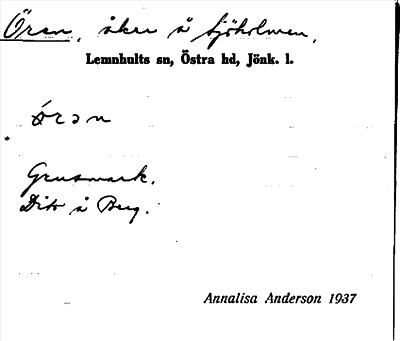 Ören, åker å Sjöholmen.
Lemnhults sn, Östra hd, Jönk. l.
ǿrən
Grusmark.
Dito å Berg.
Annalisa Anderson 1937